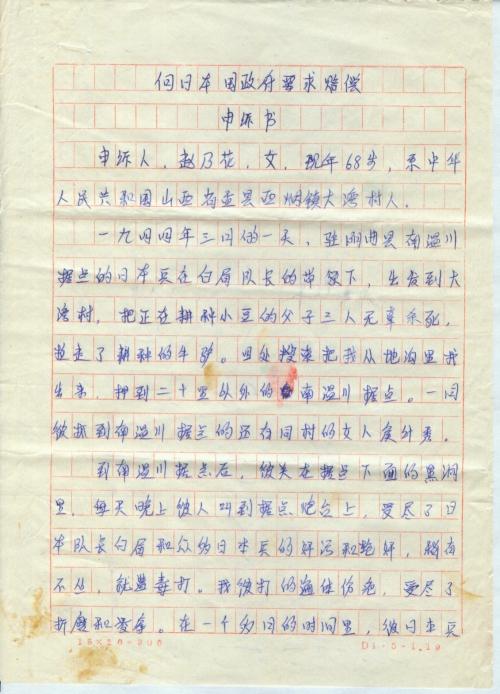 向日本国政府要求赔偿
申诉书
申诉人，赵乃花，女，现年68岁，系中华
人民共和国山西省盂县西烟镇大湾村人。
一九四四年三月的一天，驻阳曲县南温川
据点的日本兵在白眉队长的带领下，出发到大
湾村，把正在耕种小豆的父子三人无辜杀死，
拉走了耕种的牛驴。四处搜索把我从地沟里找
出来，押到二十里以外的南温川据点。一同
被抓到南温川据点的还有同村的女人
到南温川据点后，被关在据点下面的黑洞
里。每天晚上被人叫到据点炮台上，受尽了日
本队长白眉和众约日本兵的奸污和轮奸，稍有
不从，就遭毒打。我被打的遍体伤疤，受尽了
折磨和凌辱。在一个多月的时间里，被日本兵
15×20=300
DI·5-1.19